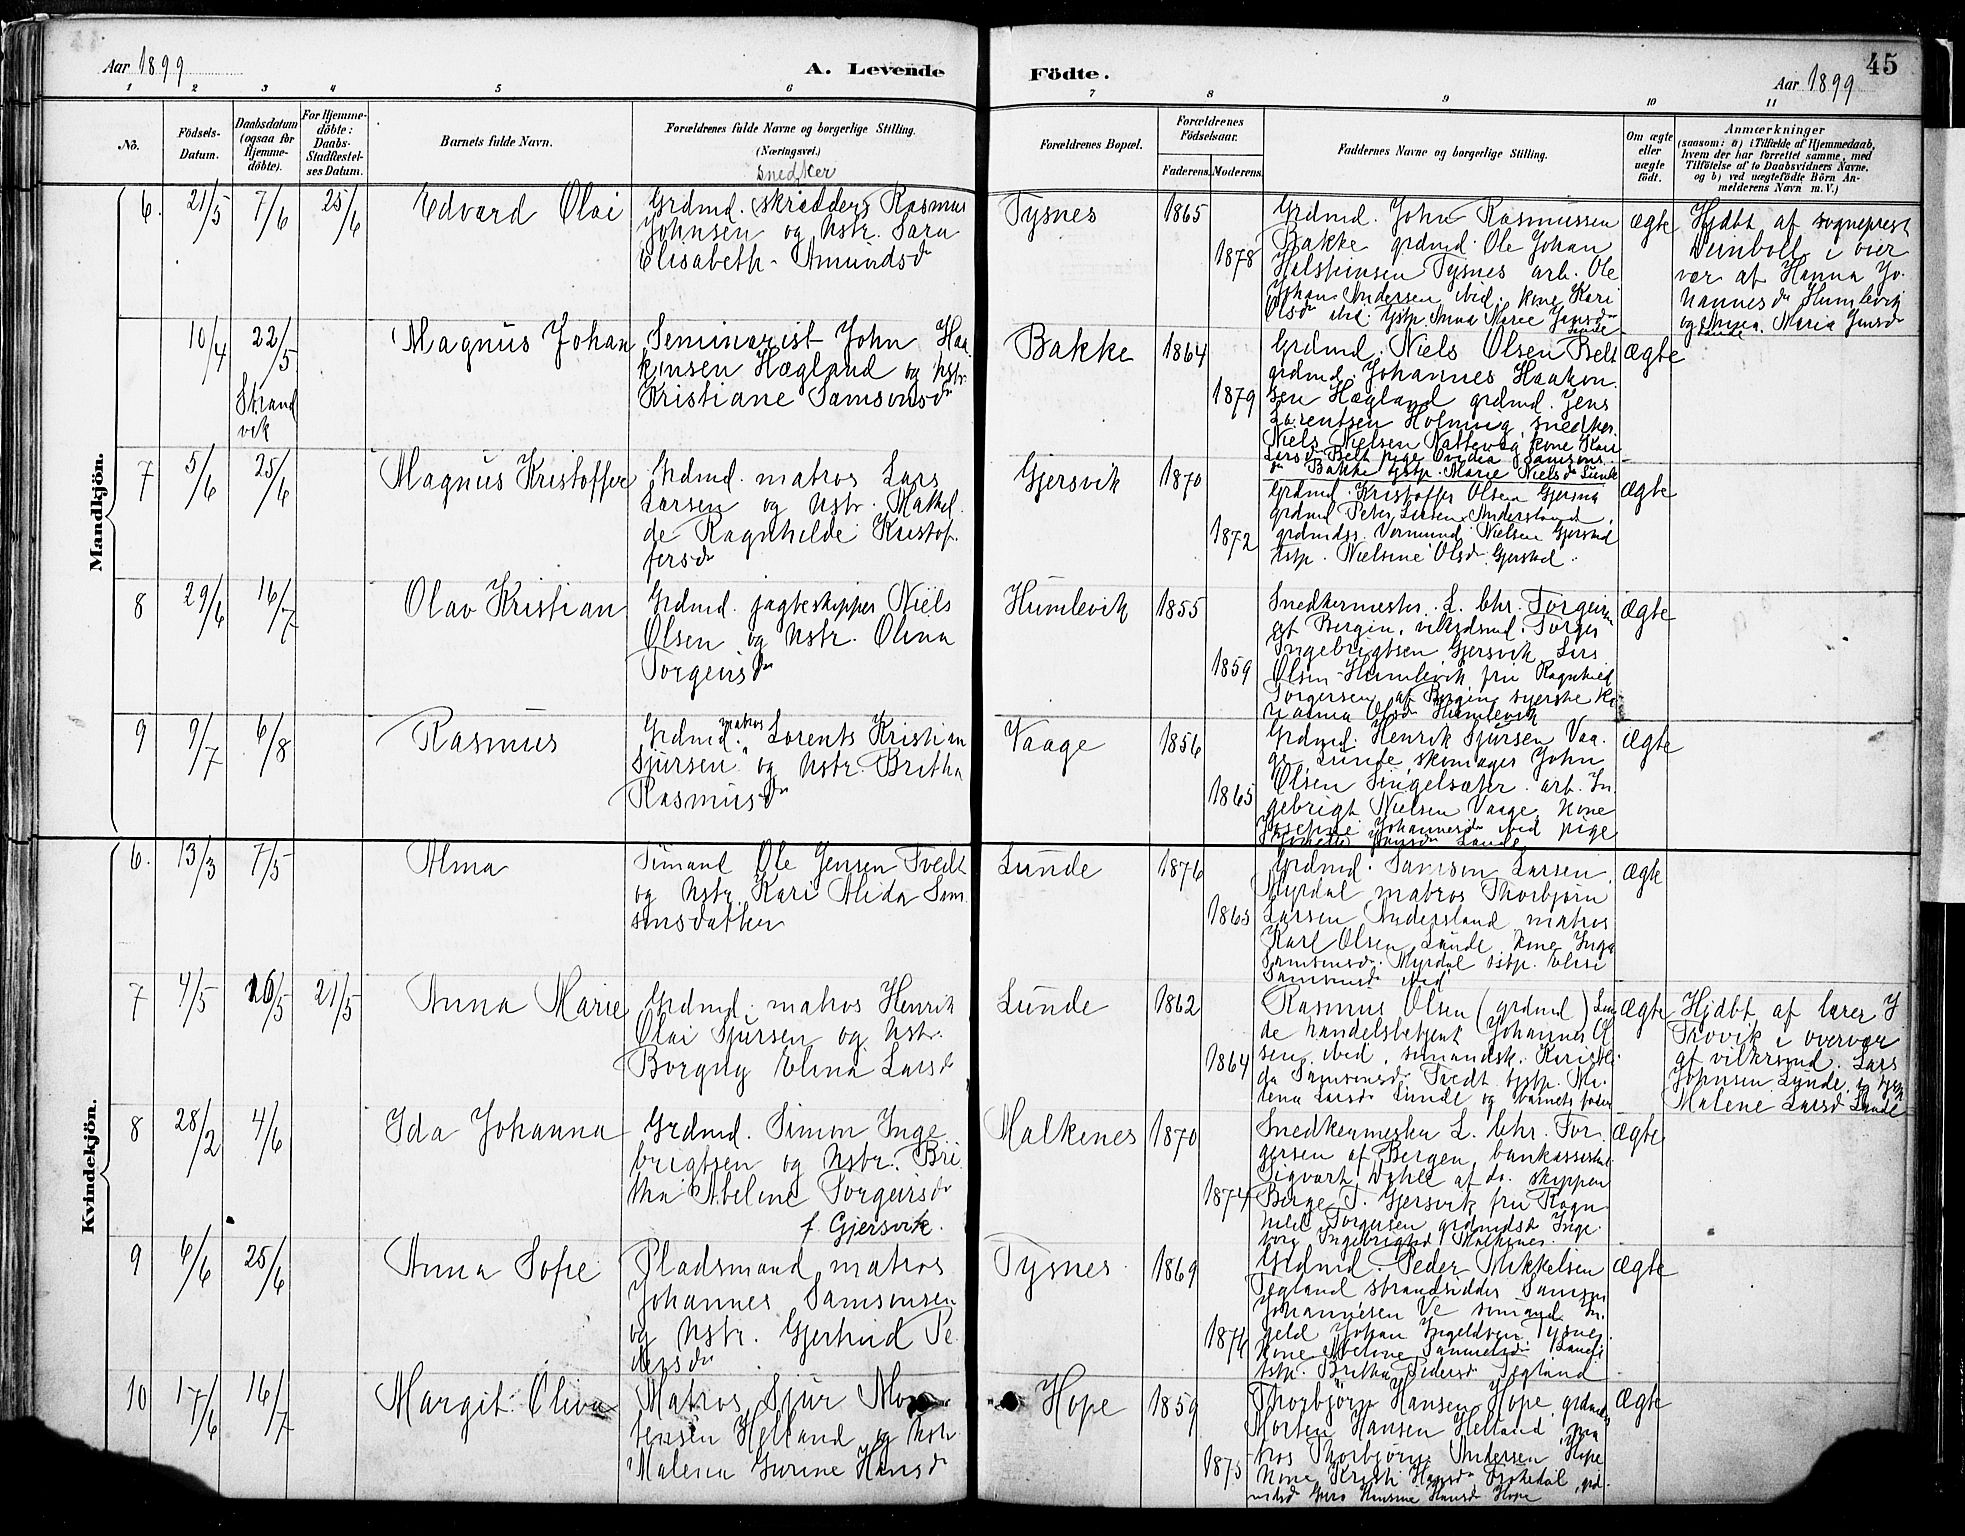 Aar 1899
A. Levende
Födte.
Aar 1899
45
1 2 3 4 5 6 7 8 9 10 11
No.
Födsels-
Datum.
Daabsdatum
(ogsaa for
Hjemme-
döbte).
For Hjemme-
döbte:
Daabs-
Stadfæstel-
ses Datum.
Barnets fulde Navn.
Forældrenes fulde Navne og borgerlige Stilling.
(Næringsvei.)
Forældrenes Bopæl.
Forældrenes
Födselsaar.
Faderens. Moderens.
Faddernes Navne og borgerlige Stilling.
Om ægte
eller
uægte
født.
Anmærkninger
(saasom: a) i Tilfælde af Hjemmedaab,
hvem der har forrettet samme, med
Tilföielse af to Daabsvidners Navne,
og b) ved uægtefödte Börn An-
melderens Navn m. V.)
Mandkjön.
snedker
6. 21/5 7/6 25/6 Edvard Olai
Grdmd. skrædder Rasmus
Johnsen og hstr. Sara
Elisabeth Amundsdr
Tysnes 1865 1878
Grdmd. John Rasmussen
Bakke grdmd. Ole Johan
Halsteinsen Tysnes arb. Ole
Johan Andersen ibid. kone Kari
Olsdr ibid. tjstp. Anna Marie Jensdr
Lunde
ægte
Hjdbt af sogneprest
i over
vær af Hanna Jo-
hannesdr Humlevik
og Anna Maria Jensdr
Lunde
10/4 22/5
Strand
vik
Magnus Johan
Seminarist John Haa
kensen Hægland og hstr.
Kristiane Samsonsdr
Bakke 1864 1879
Grdmd. Niels Olsen Belt
grdmd. Johannes Haakon
sen Hægland grdmd. Jens
Larentsen Holming, snedker
Niels Nielsen Nattevag, kone Kari
Larsdr Belt pige Ovidia Samsons
dr Bakke tjstp. Marie Nielsdr Lunde
Ægte
7 5/6 25/6 Magnus Kristoffer
Grdmd. matros Lars
Larsen og hstr. Mathil
de Ragnhilde Kristof
fersdr
Gjersvik 1870 1872
Grdmd. Kristoffer Olsen
Grdmd Peter Larsen Andersland,
grdmdss. Vermund Nielsen Gjerstad
tstp. Nielsine Olsdr Gjerstad.
Ægte
8 29/6 16/7 Olav Kristian
Grdmd. jagteskipper Niels
Olsen og hstr. Olina
Torgeirsdr
Humlevik 1855 1859
Snedkermester L. Chr. Torgeirsen
af Bergen, vilkrdmd. Torger
Ingebrigtsen Gjersvik Lars
Olsen Humlevik fru Ragnhild
Torgersen af Bergen syerske Ka
rianna Olsdr Humlevik
Ægte
9 9/7 6/8 Rasmus
matros
Grdmd. Lorents Kristian
Sjursen og hstr. Britha
Rasmusdr
Vaage 1856 1865
Grdmd. Henrik Sjursen Vaa
ge Lunde skomager John
Olsen Singelsæter arb. In
gebrigt Nielsen Vaage kone
Josefine Johannesdr ibid pige
Jensdr Lunde
Ægte
Kvindekjön.
6. 13/3 7/5 Alma
Simand Ole Jensen Tvedt
og hstr. Kari Alida Sam
sonsdatter
Lunde 1876 1865
Grdmd. Samson Larsen
Myrdal matros Thorbjörn
Larsen Andersland matros
Karl Olsen Lunde kone Inga
Samsonsdr Myrdal tstp. Elise
Samsonsdr ibid
Ægte
7 4/5 16/5 21/5 Anna Marie
Grdmd. matros Henrik
Olai Sjursen og hstr.
Borgny Elina Larsdr
Lunde 1862 1864
Rasmus Olsen (grdmd) Lun
de handelsbetjent Johannes Ol
sen ibid. simandsk. Kari Ali
da Samsonsdr Tvedt tjstp. Ma-
lena Larsdr Lunde og barnets fader
Ægte
Hjdbt af lærer J
Trovik i overvær
af vilkrsmd. Lars
Johnsen Lunde og
Malene Larsdr Lunde
8 28/2 4/6 Ida Johanna
Grdmd. Simon Inge
brigtsen og hstr. Bri
tha Abeline Torgeirsdr
f. Gjersvik.
Malkenes 1870 1874
Snedkermester L. Chr. Tor
gersen af Bergen, bankassistent
Sigvart Dahle af do. skipper
Berge T. Gjersvik fru Ragn
hild Torgersen grdmdsd. Inge
borg Ingebrigtsd. Malkenes
Ægte
9 6/6 25/6 Anna Sofie
Pladsmand matros
Johannes Samsonsen
og hstr. Gjertrud Pe
dersdr
Tysnes 1869 1874
Grdmd. Peder Mikkelsen
Tegland strandsidder Samson
Johannesen Ve simand In
geld Johan Ingeldsen Tysnes
kone Abelone Samuelsdr
tstp. Britha Pedersdr Tegland
Ægte
10 17/6 16/7 Margit Oliva
Matros Sjur Mor
tensen Helland og hstr
Malena Gurine Hansdr
Hope 1859 1875
Thorbjörn Hansen Hope, grdmd
Morten Hansen Helland, ma
tros Thorbjörn Andersen Hope
kone Kristi Hansdr, grd
mdsd Hansine Hansdr Hope
Ægte